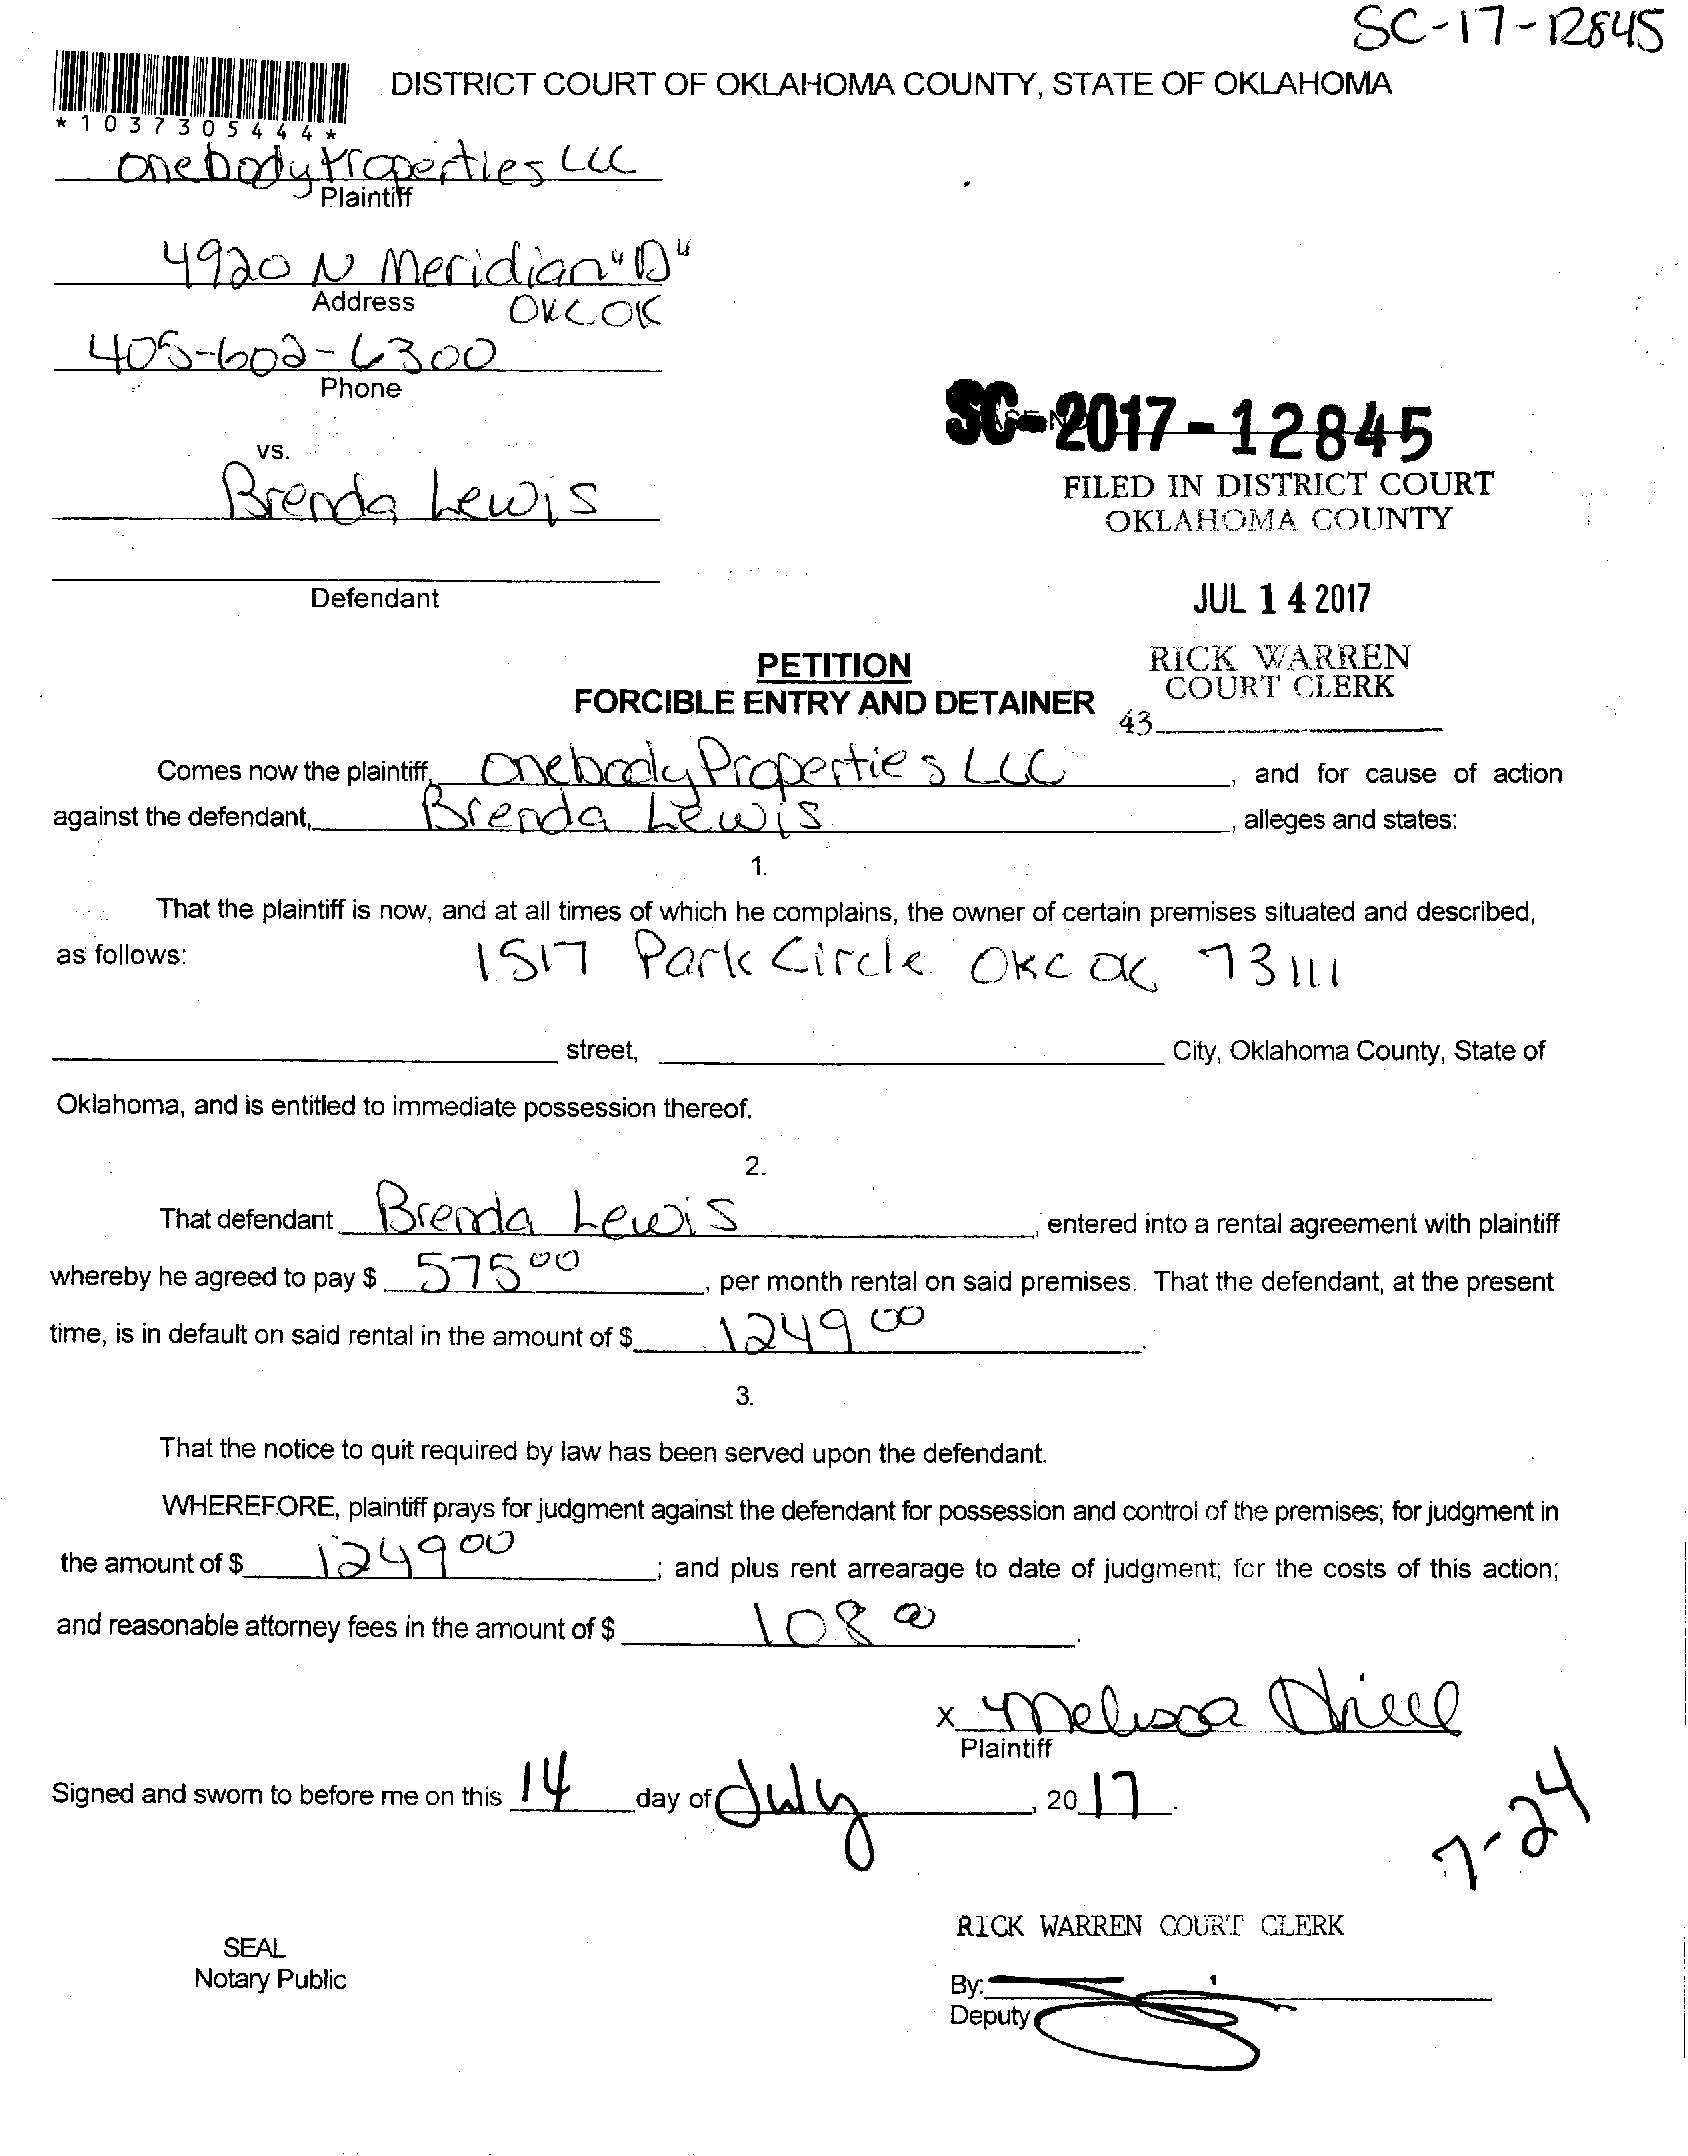 SC-17-12845
DISTRICT COURT OF OKLAHOMA COUNTY, STATE OF OKLAHOMA
*1037305444*
Onebody Properties LLC
Plaintiff
4920 N Meridian "D"
Address OKC OK
405-602-6300
Phone
vs.
SC-2017-12845
Brenda Lewis
FILED IN DISTRICT COURT
OKLAHOMA COUNTY
Defendant
JUL 14 2017
PETITION
FORCIBLE ENTRY AND DETAINER
RICK WARREN
COURT CLERK
43
Comes now the plaintiff, Onebody Properties LLC, and for cause of action
against the defendant, Brenda Lewis, alleges and states:
1.
That the plaintiff is now, and at all times of which he complains, the owner of certain premises situated and described,
as follows: 1517 Park Circle OKC OK 73111
street, City, Oklahoma County, State of
Oklahoma, and is entitled to immediate possession thereof.
2.
That defendant Brenda Lewis, entered into a rental agreement with plaintiff
whereby he agreed to pay $ 575 00, per month rental on said premises. That the defendant, at the present
time, is in default on said rental in the amount of $ 1249 00.
3.
That the notice to quit required by law has been served upon the defendant.
WHEREFORE, plaintiff prays for judgment against the defendant for possession and control of the premises; for judgment in
the amount of $ 1249 00; and plus rent arrearage to date of judgment; for the costs of this action;
and reasonable attorney fees in the amount of $ 108 00.
x Melissa
Plaintiff
Signed and sworn to before me on this 14 day of July, 2017.
7-24
RICK WARREN COURT CLERK
SEAL
Notary Public
By:
Deputy